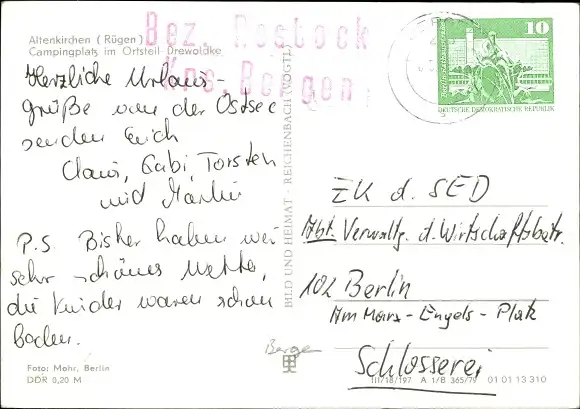 Altenkirchen (Rügen)
Campingplatz im Ortsteil Drewoldke
Bez. Rostock
Krs. Bergen
Herzliche Urlaubs-
grüße von der Ostsee
senden Euch
Claus, Gabi, Torsten
und Martin
P.S. Bisher haben wir
sehr schönes Wetter,
die Kinder waren schon
baden.
Foto: Mohr, Berlin
DDR 0,20 M
BILD UND HEIMAT · REICHENBACH (VOGTL)
10
DEUTSCHE DEMOKRATISCHE REPUBLIK
ZK d. SED
Abt. Verwaltg. d. Wirtschaftsbetr.
102 Berlin
Am Marx-Engels-Platz
Schlosserei
Bergen
III/18/197 A 1/B 365/79 01 01 13 310